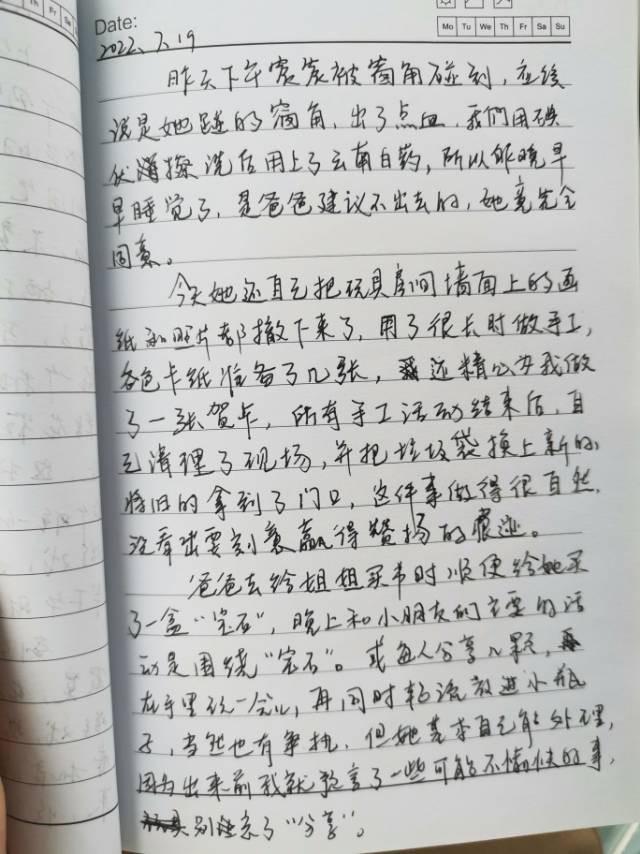 Date:
2022.7.19
Mo Tu We Th Fr Sa Su
昨天下午宸宸被窗角碰到，应该
说是她碰的窗角，出了点血，我们用碘
伏擦洗后用上了云南白药，所以昨晚早
早睡觉了，是爸爸建议不出去的，她竟完全
同意。
今天她还自己把玩具房间墙面上的画
纸和照片都撤下来了，用了很长时做手工，
各色卡纸准备了几张，还精心为我做
了一张贺卡，所有手工活动结束后，自
己清理了现场，并把垃圾袋换上新的，
将旧的拿到了门口，这件事做得很自然，
没看出要刻意赢得赞扬的痕迹。
爸爸去给姐姐买书时顺便给她买
了一盒“宝石”，晚上和小朋友们主要的活
动是围绕“宝石”。或每人分享几颗，
在手里玩一会儿，再同时轮流放进小瓶
子，当然也有争执，但她基本自己能处理，
因为出来前我就预言了一些可能不愉快的事，
别忘了“分享”。